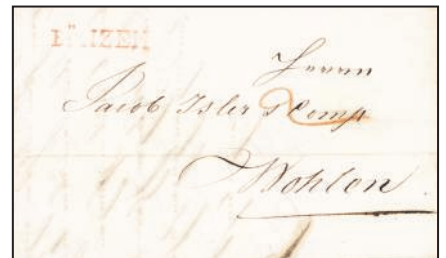 Herrn
Jacob Isler & Comp
Wohlen